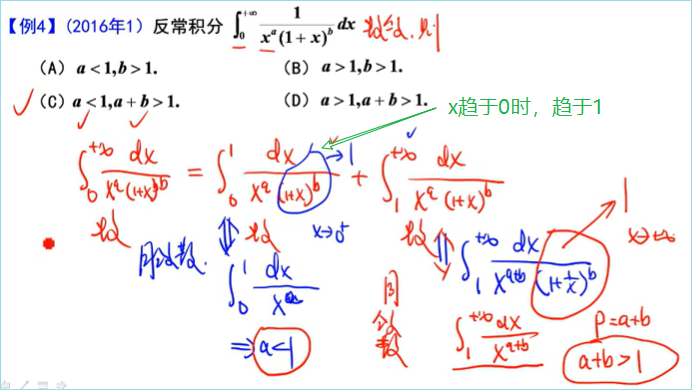 【例4】(2016年1) 反常积分 ∫₀^{+∞} 1/(x^a(1+x)^b) dx 收敛,则
(A) a<1,b>1.
(B) a>1,b>1.
(C) a<1,a+b>1.
(D) a>1,a+b>1.
x趋于0时，趋于1
∫₀^{+∞} dx/(x^a(1+x)^b) = ∫₀^1 dx/(x^a(1+x)^b) → 1 + ∫₁^{+∞} dx/(x^a(1+x)^b)
收敛 ⇕ 收敛 x→0⁺ 收敛 ⇕ 1 x→+∞
同敛散. ∫₀^1 dx/x^a ∫₁^{+∞} dx/(x^{a+b}(1+1/x)^b)
⇒ a<1 同敛散 ∫₁^{+∞} dx/x^{a+b} P=a+b
a+b>1